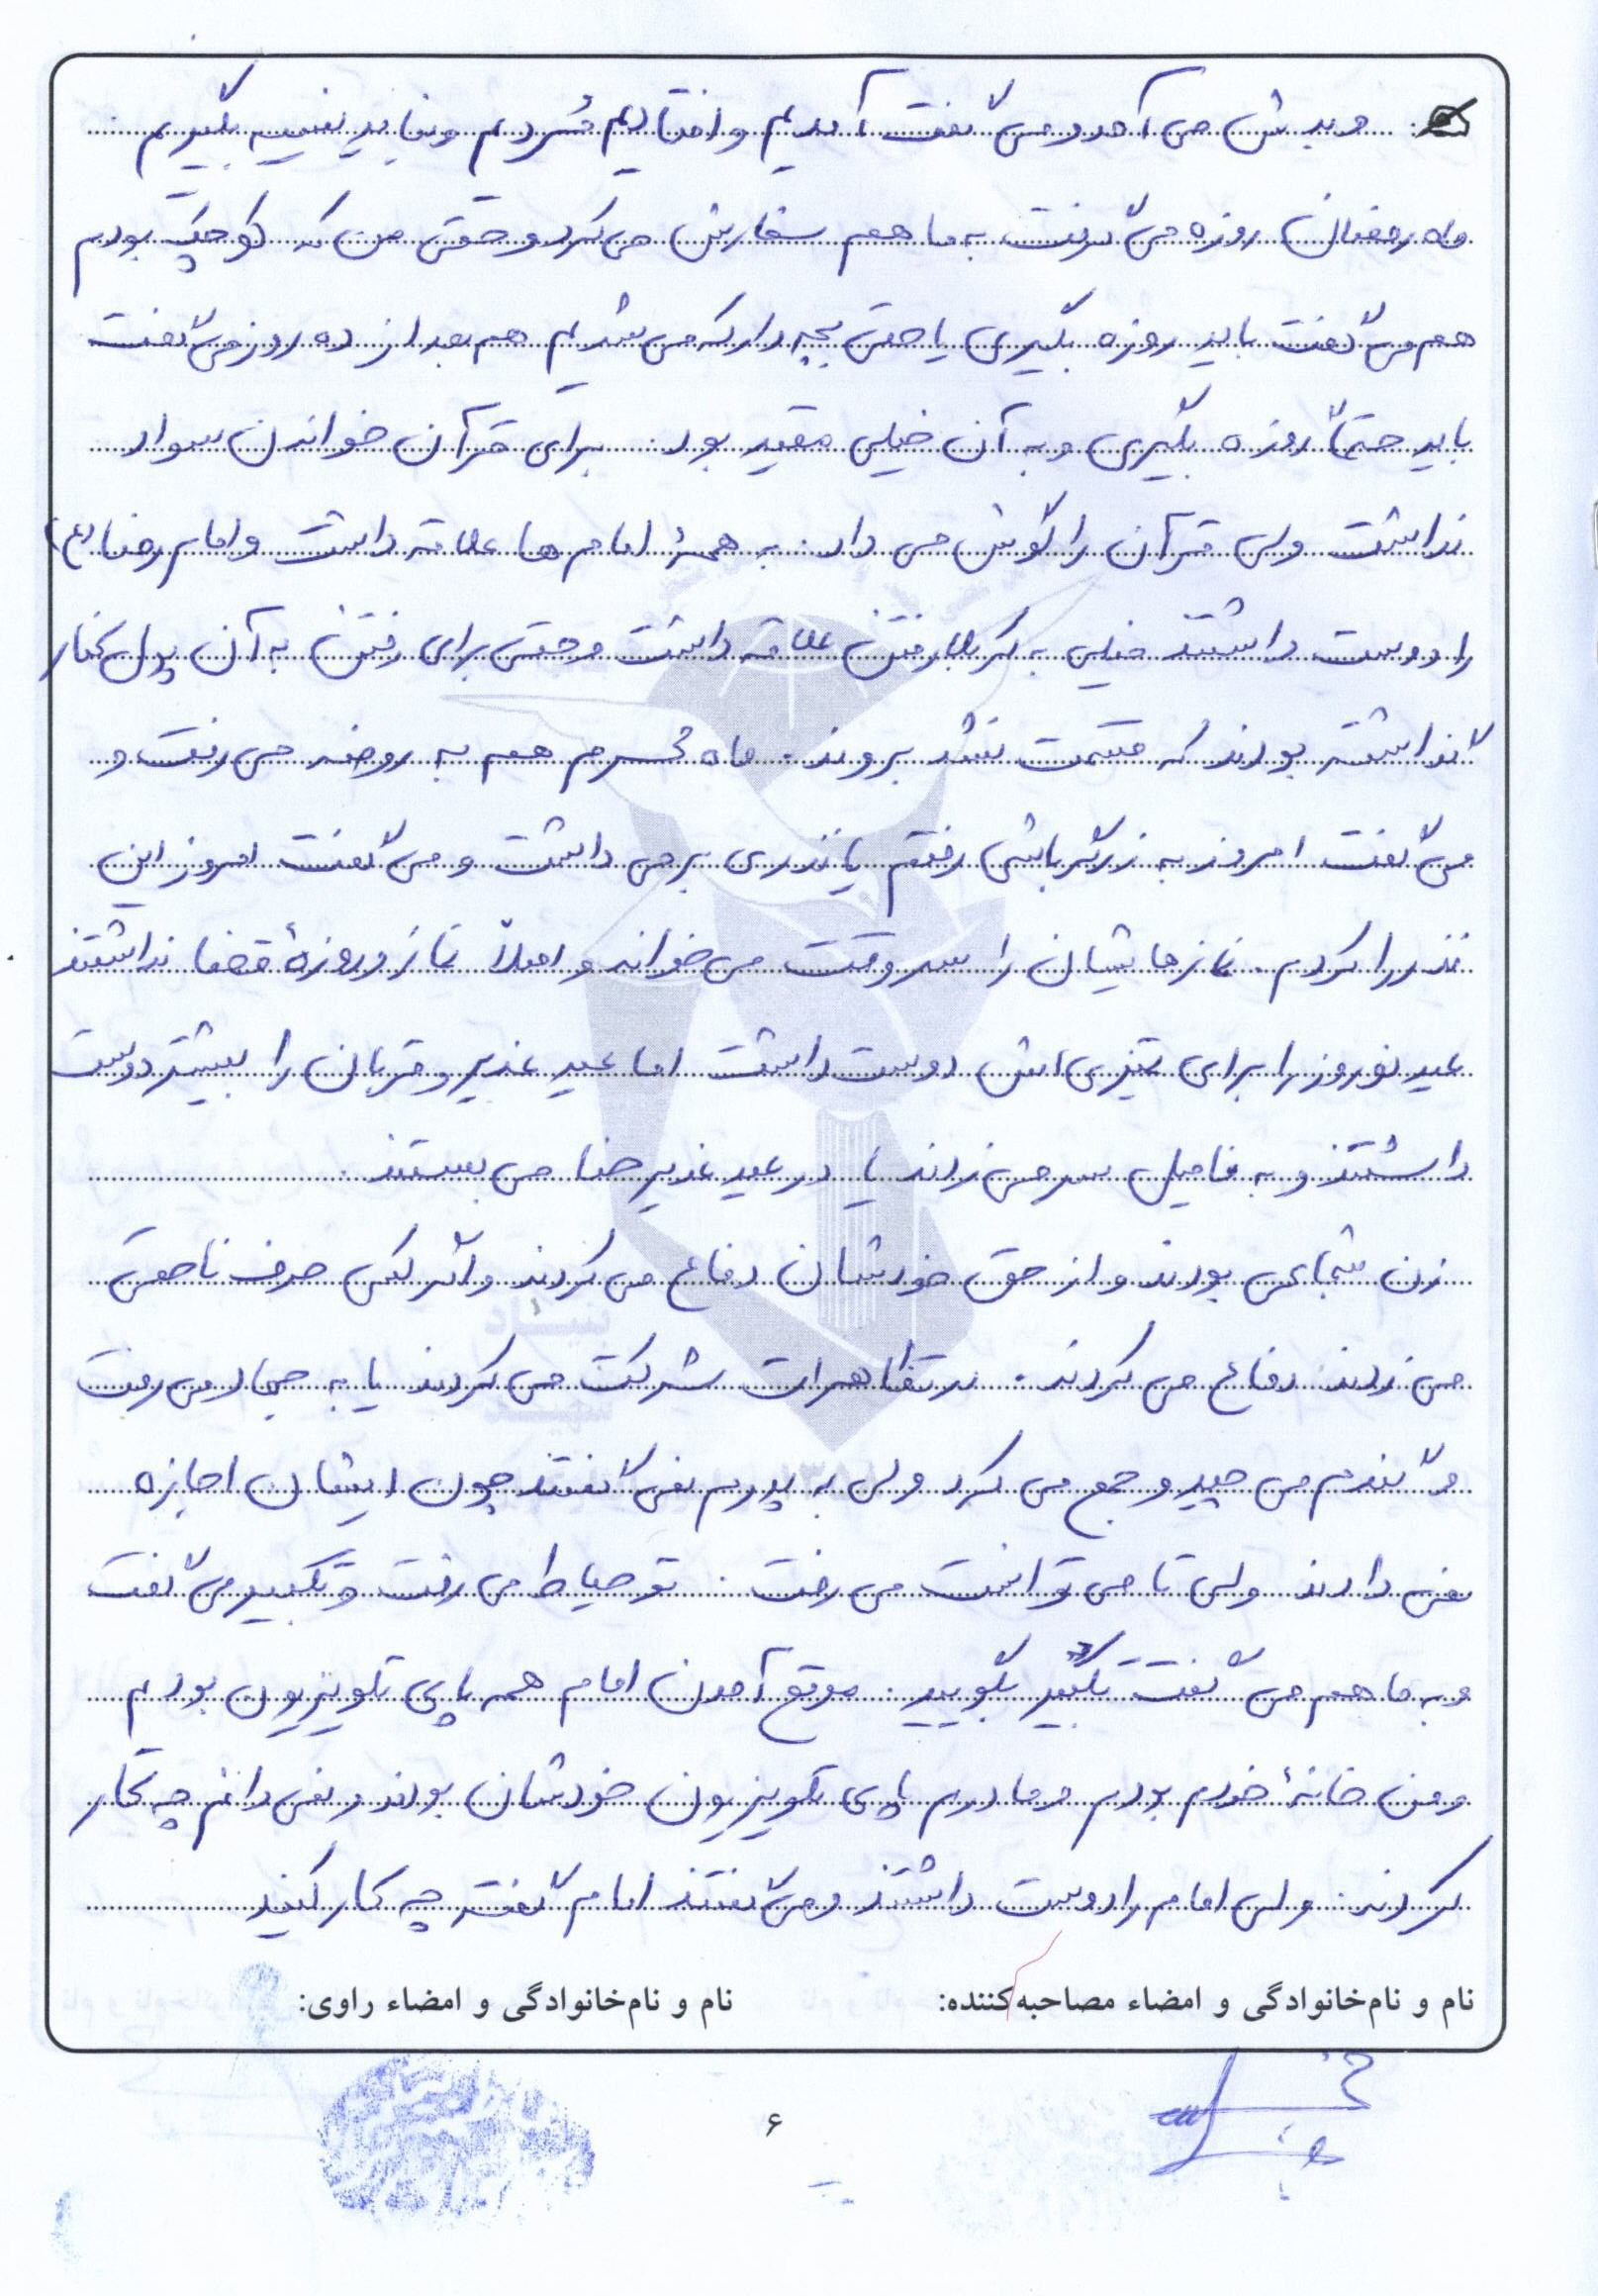 و بدش می آمد و می گفت آمدیم و افتادیم مُردیم و نباید نسیه بگیریم
ماه رمضان روزه می گرفت به ما هم سفارش می کرد و حتی من که کوچک بودم
هم می گفت باید روزه بگیری یا حتی بچه دار که می شدیم هم بعد از ده روز می گفت
باید حتماً روزه بگیری و به آن خیلی مقید بود. برای قرآن خواندن سواد
نداشت ولی قرآن را گوش می داد. به همهٔ امام ها علاقه داشت و امام رضا (ع)
را دوست داشتند خیلی به کربلا رفتن علاقه داشت و حتی برای رفتن به آن پول کنار
گذاشته بودند که قسمت نشد بروند. ماه محرم هم به روضه می رفت و
می گفت امروز به زیر باش رفتم یا نذری بر می داشت و می گفت امروز این
نذر را کردم. نمازهایشان را سر وقت می خواند و اصلاً نماز و روزهٔ قضا نداشتند
عید نوروز را برای تمیزی اش دوست داشت اما عید غدیر و قربان را بیشتر دوست
داشتند و به فامیل سر می زدند یا در عید غدیر حنا می بستند.
زن شجاعی بودند و از حق خودشان دفاع می کردند و اگر کسی حرف ناحقی
می زدند دفاع می کردند. در تظاهرات شرکت می کردند یا به جهاد می رفت
و گندم می چید و جمع می کرد ولی به پدرم نمی گفتند چون ایشان اجازه
نمی دادند ولی تا می توانست می رفت. تو حیاط می رفت و تکبیر می گفت
و به ما هم می گفت تکبیر بگویید. موقع آمدن امام همه پای تلویزیون بودیم
و من خانهٔ خودم بودم و مادرم پای تلویزیون خودشان بودند و نمی دانم چه کار
کردند. ولی امام را دوست داشتند و می گفتند امام گفته چه کار کنید
نام و نام‌خانوادگی و امضاء مصاحبه‌کننده:
نام و نام‌خانوادگی و امضاء راوی:
۶